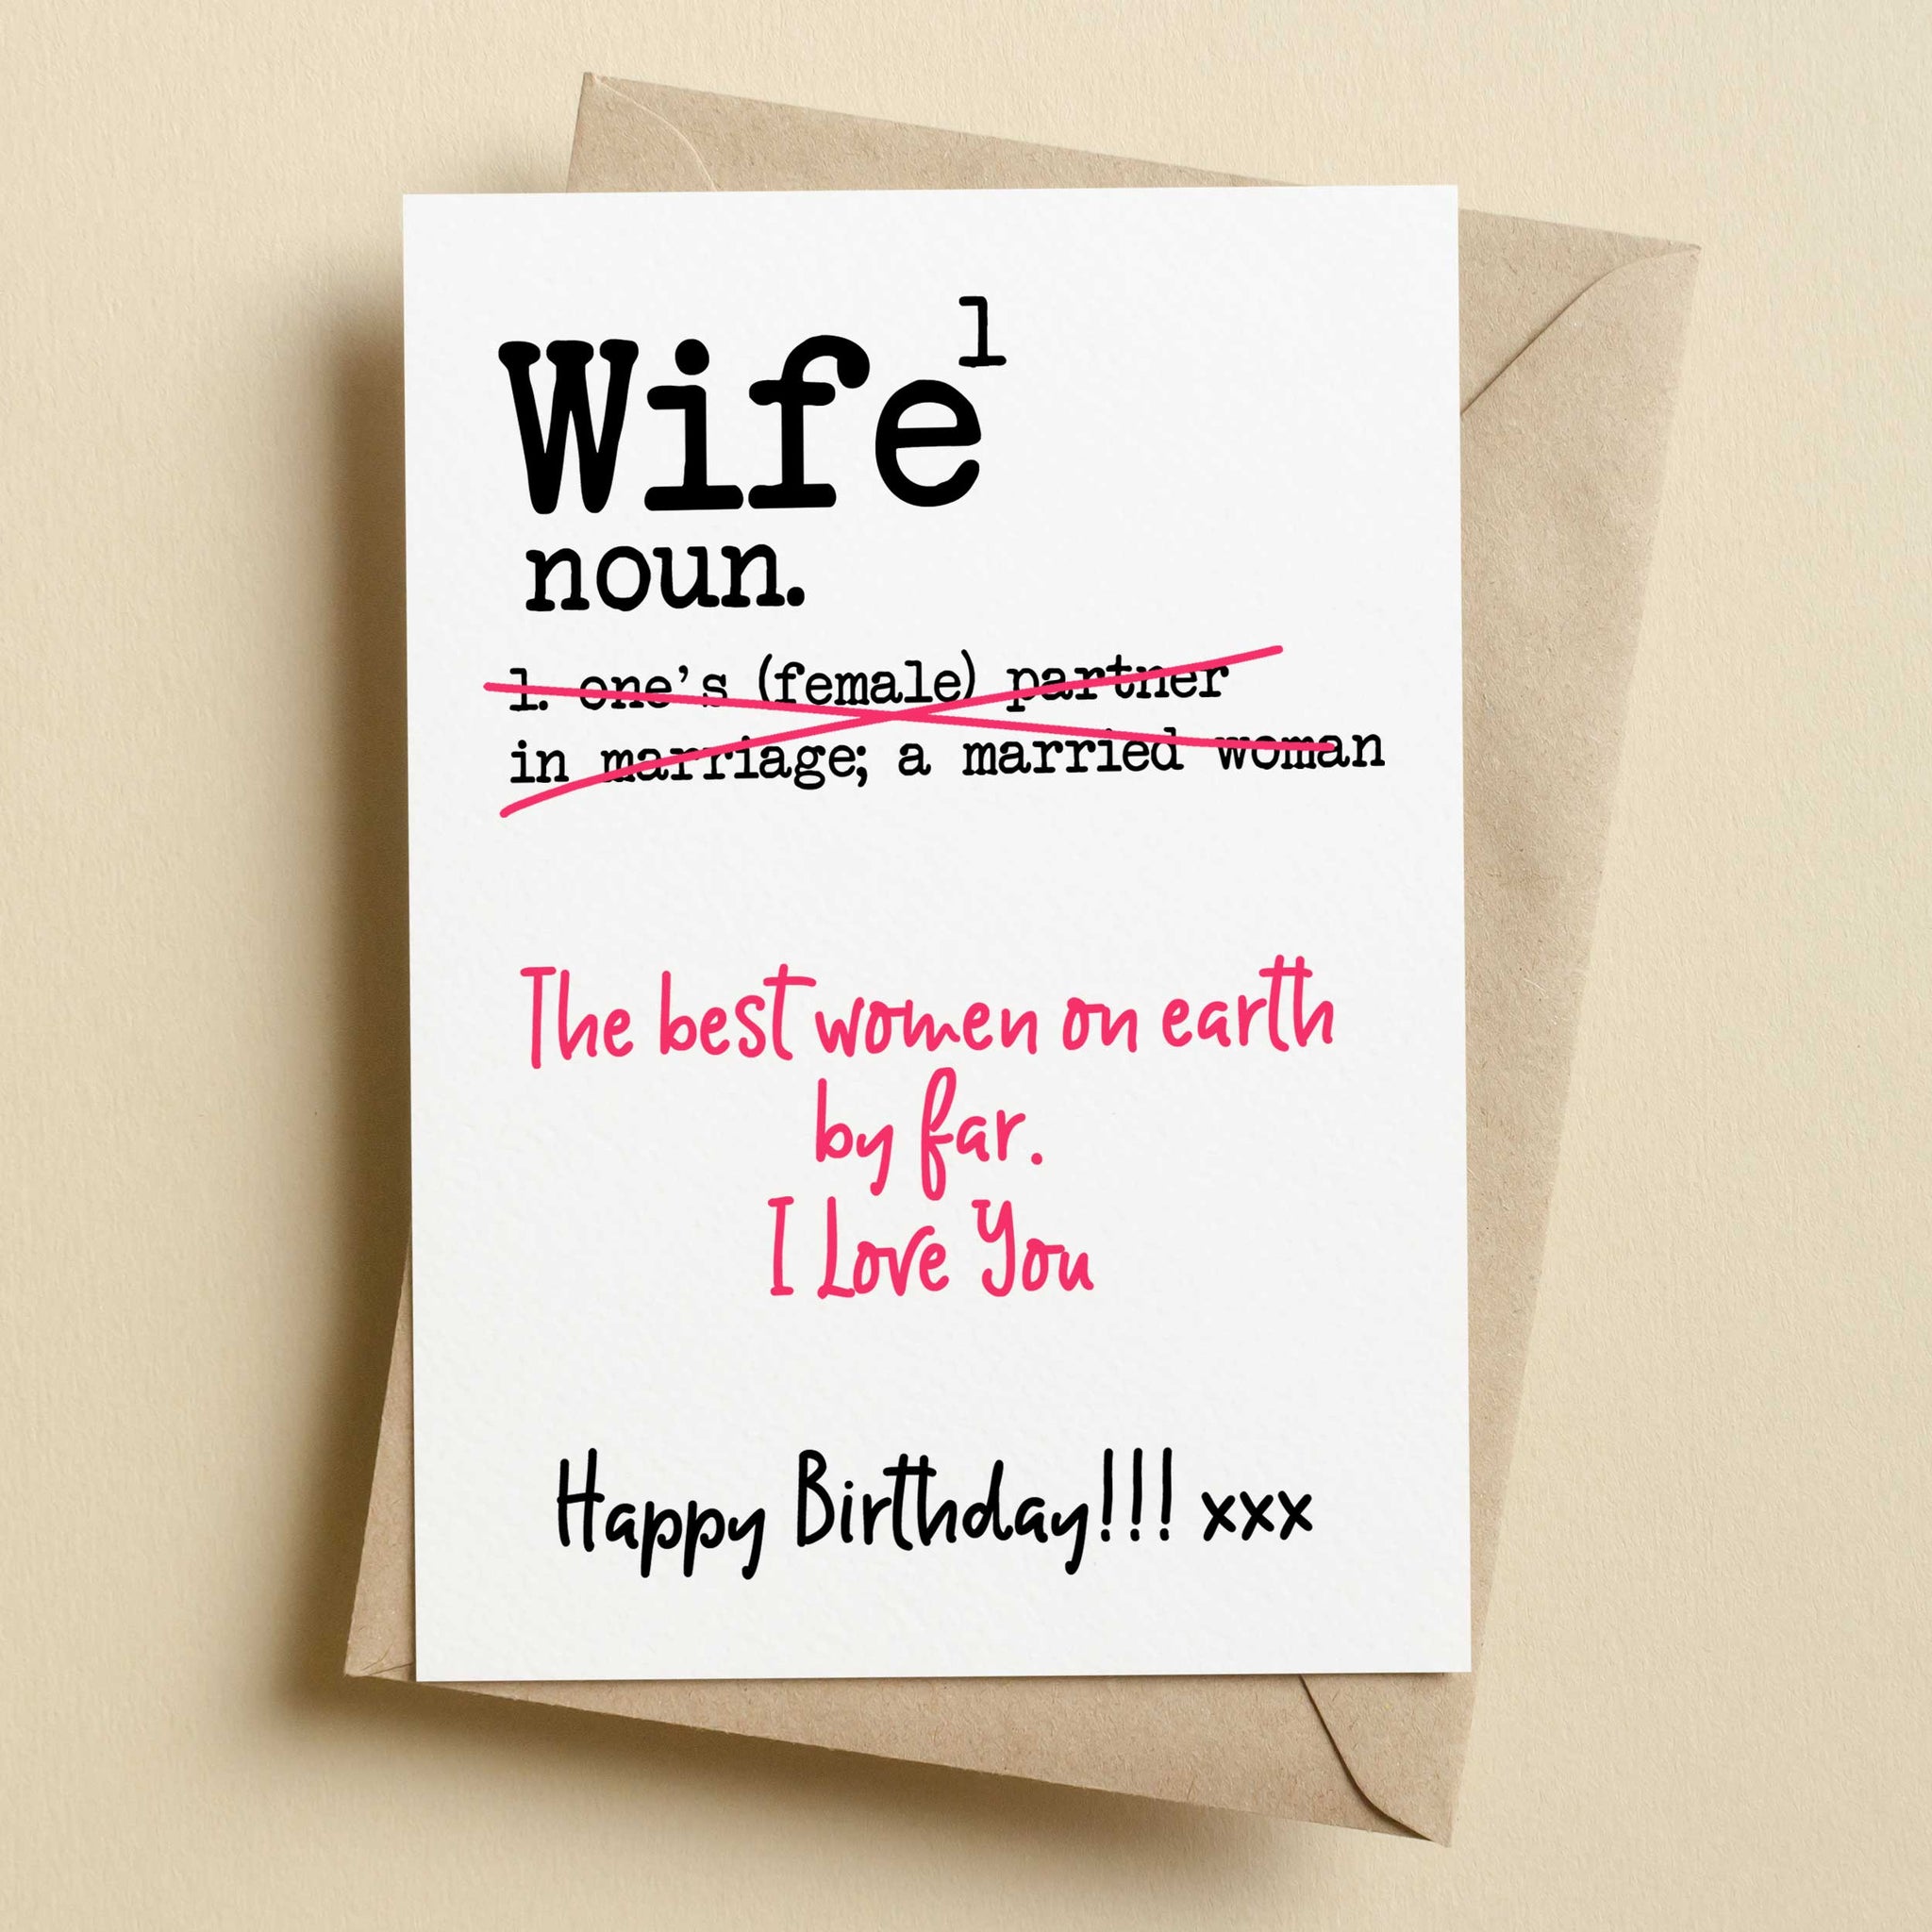 Wife¹
noun.
1. one's (female) partner
in marriage; a married woman
The best women on earth
by far.
I Love You
Happy Birthday!!! xxx